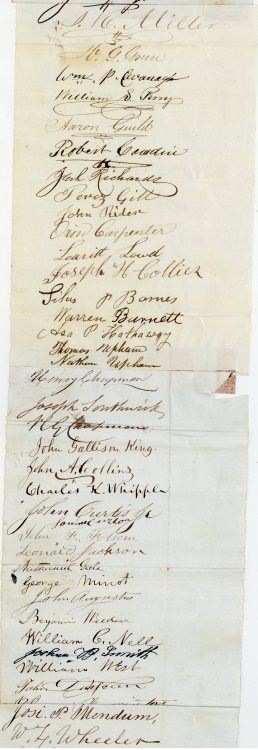 J. K. Miller
Wm. P. Cavanagh
William S. Perry
Aaron Guild
Robert Cowdin
Josh Richards
Perez Gill
John Rider
Oren Carpenter
Leavitt Loud
Joseph H Collier
Silas P Barnes
Warren Burnett
Asa P Hathaway
Thomas Upham
Nathan Upham
Henry Chapman
Joseph Southwick
H G Chapman
John Gattison King.
John A. Collins
Charles K. Whipple
John Curtis Jr
Leonard Jackson
George Minot
John Augustus
Benjamin Weeden
William C. Nell
Joshua B. Smith
William West
Josi. P. Mendum,
W. L. Wheeler